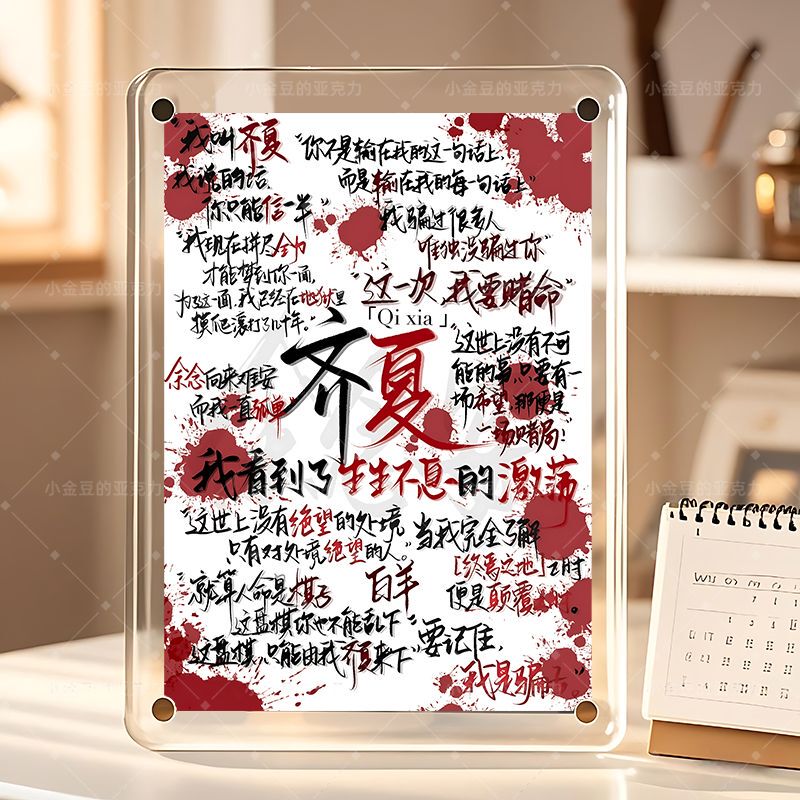 "我叫齐夏
我说的话,
你只能信一半"
"你不是输在我的这一句话上,
而是输在我的每一句话上"
"我骗过很多人
唯独没骗过你"
"我现在拼尽全力
才能够到你一面,
为了这一面,我已经在地狱里
摸爬滚打了几十年。"
"这一次,我要赌命"
「Qi xia」
齐夏
"这世上没有不可
能的事,只要有一
场希望,那便是
一场赌局!
余念向来难安
而我一直孤单"
我看到了生生不息的激荡
"这世上没有绝望的处境
只有对处境绝望的人。"
当我完全了解
「终焉之地」之时
便是颠覆
"就算人命是棋子
这盘棋你也不能乱下
这盘棋,只能由我齐夏来下"
白羊
"要记住,
我是骗子。"
小金豆的亚克力